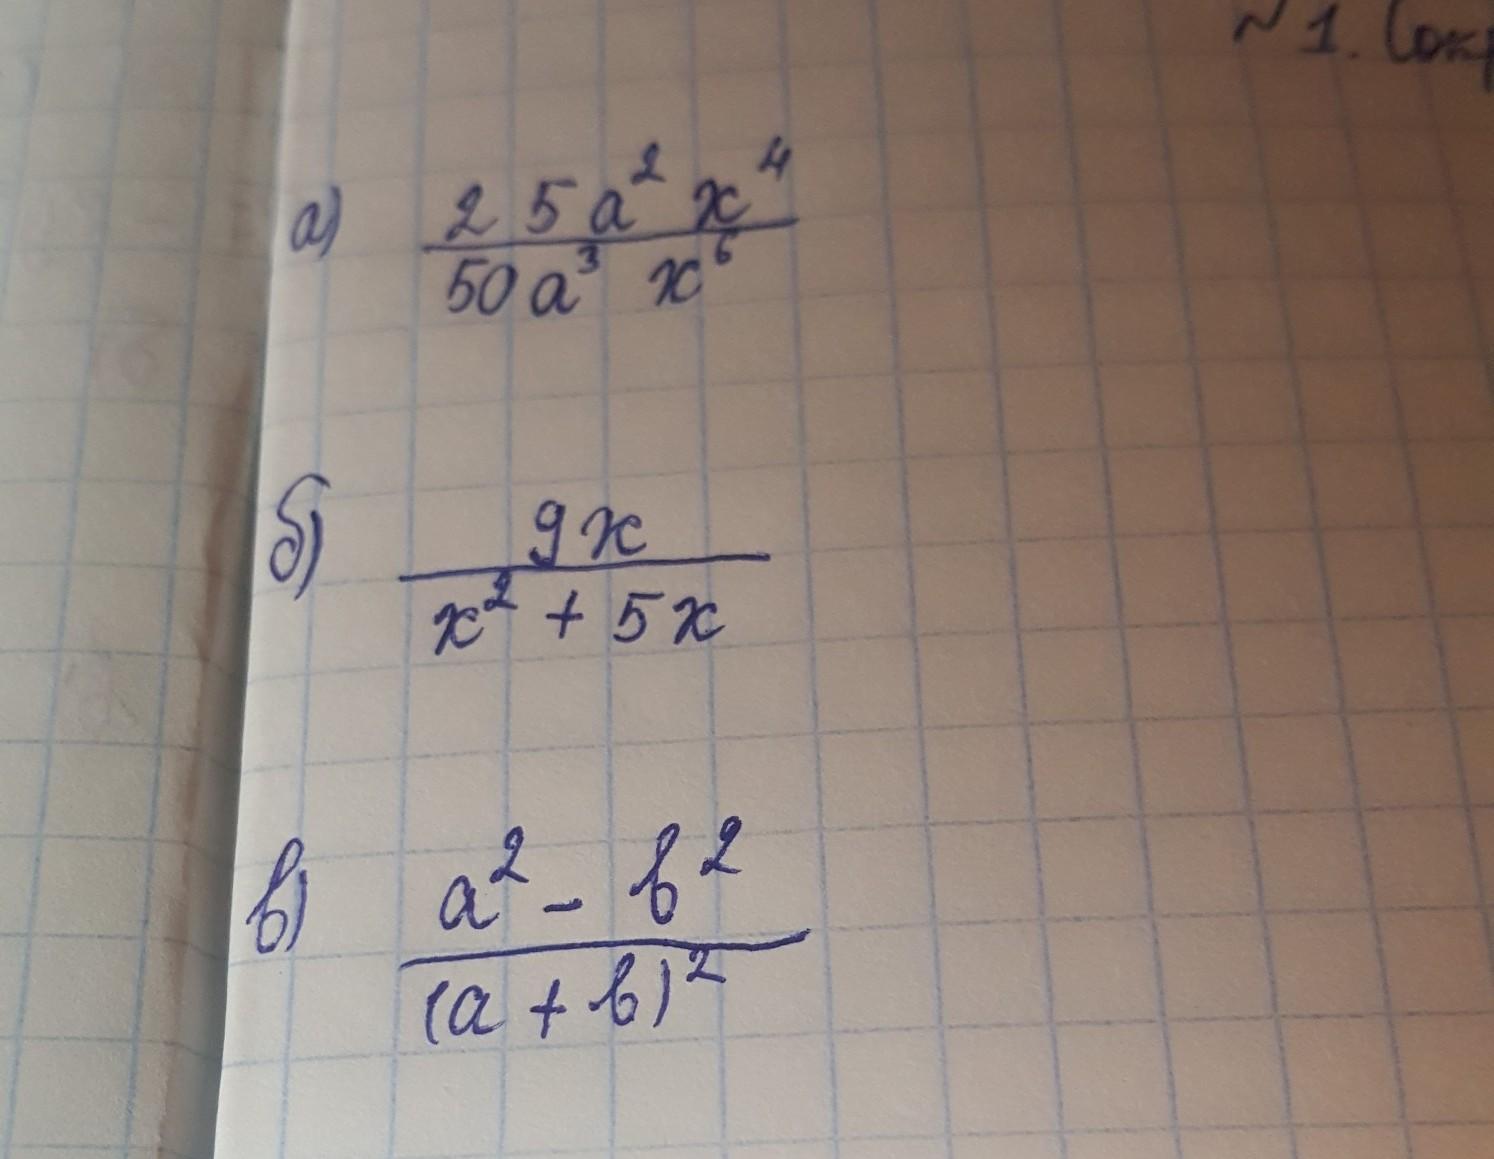 №1. Сокр
а) 25a²x⁴
50a³x⁶
б) 9x
x² + 5x
в) a² - b²
(a + b)²